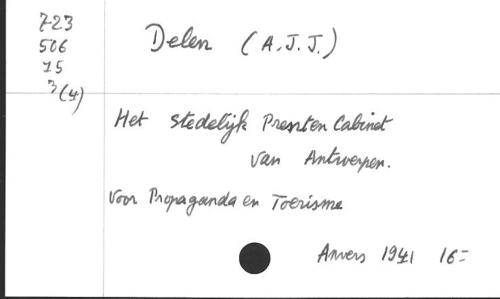 723
506
15
3(4)
Delen (A.J.J.)
Het stedelijk Prenten Cabinet
van Antwerpen.
voor Propaganda en Toerisme
Anvers 1941 16=